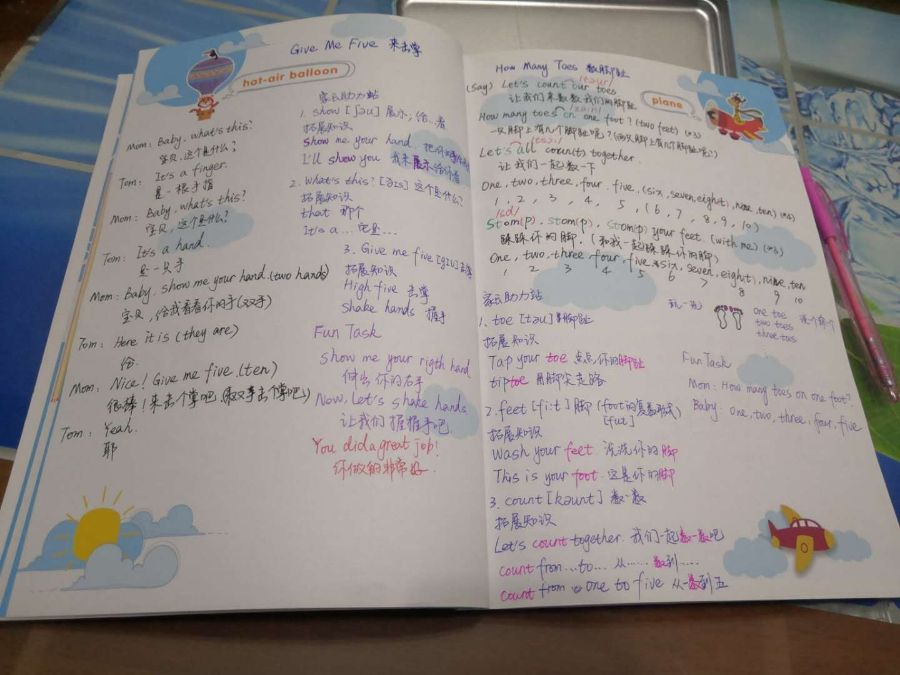 Give Me Five 来击掌
hot-air balloon
Mom: Baby, what's this?
宝贝,这个是什么?
Tom: It's a finger.
是一根手指
Mom: Baby, what's this?
宝贝,这个是什么?
Tom: It's a hand.
是一只手
Mom: Baby, show me your hand.(two hands)
宝贝,给我看看你的手(双手)
Tom: Here it is (they are)
给.
Mom: Nice! Give me five.(ten)
很棒!来击个掌吧
Tom: Yeah.
耶
家云助力站
1. show [ʃəu] 展示,给,看
拓展知识
show me your hand
I'll show you 我来展示给你看
2. what's this? [ðɪs] 这个是什么?
拓展知识
that 那个
It's a... 它是...
3. Give me five [gɪv] 击掌
拓展知识
High-five 击掌
shake hands 握手
Fun Task
show me your rigth hand
伸出你的右手
Now, Let's shake hands
让我们握握手吧
You did a great job!
你做的非常好.
How Many Toes 数脚趾
plane
(say) Let's count our toes
让我们来数数我们的脚趾
How many toes on one foot? (two feet) (x3)
一只脚上有几个脚趾呢?(两只脚上有几个脚趾呢?)
Let's all coun(t) together.
让我们一起数一下
One, two, three, four, five, (six, seven, eight), nine, ten) (x3)
1, 2, 3, 4, 5, (6, 7, 8, 9, 10)
Stom(p), stom(p), stom(p) your feet. (with me) (x3)
跺跺你的脚. (和我一起跺跺你的脚)
One, two, three, four, five, six, seven, eight, nine, ten
1 2 3 4 5 6 7 8 9 10
家云助力站
1. toe [təu] 脚趾
拓展知识
Tap your toe 点点你的脚趾
tiptoe 用脚尖走路
2. feet [fi:t] 脚 (foot的复数形式)
[fut]
拓展知识
Wash your feet 洗洗你的脚
This is your foot 这是你的脚
3. count [kaunt] 数一数
拓展知识
Let's count together. 我们一起数一数吧
count from...to... 从......数到......
count from one to five 从一数到五
one toe
two toes
three toes
Fun Task
Mom: How many toes on one foot?
Baby: One, two, three, four, five